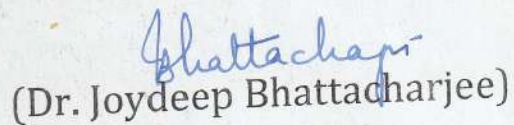 Bhattacharji
(Dr. Joydeep Bhattacharjee)